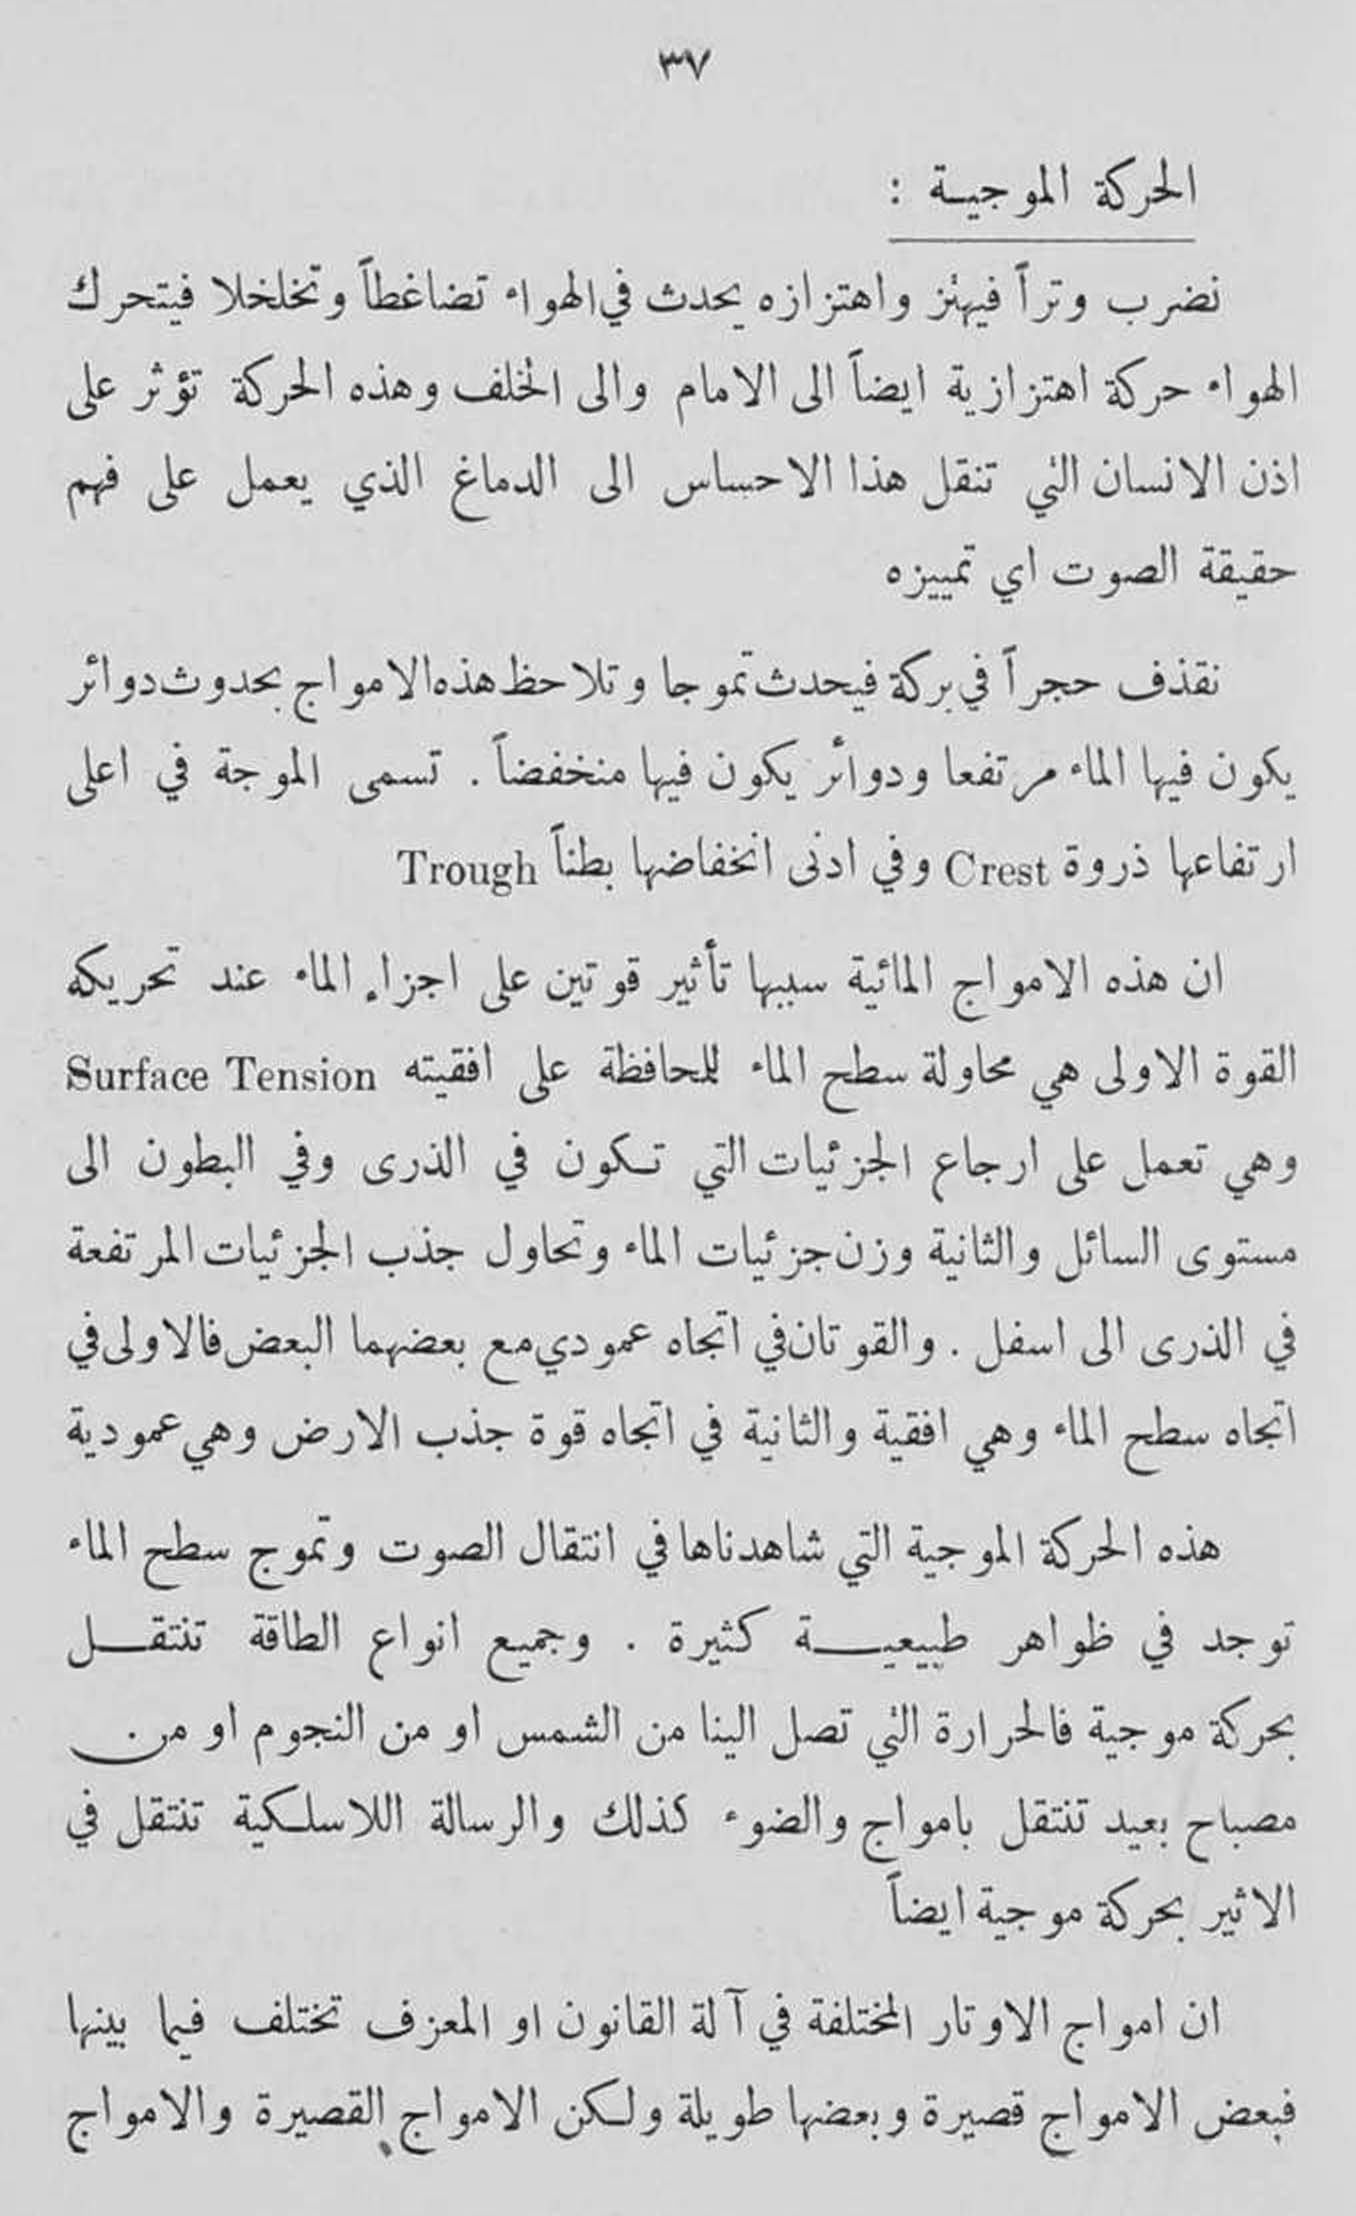 ٣٧
الحركة الموجية :
نضرب وتراً فيهتز واهتزازه يحدث في الهواء تضاغطاً وتخلخلا فيتحرك
الهواء حركة اهتزازية ايضاً الى الامام والى الخلف وهذه الحركة تؤثر على
اذن الانسان التي تنقل هذا الاحساس الى الدماغ الذي يعمل على فهم
حقيقة الصوت اي تمييزه
نقذف حجراً في بركة فيحدث تموجا وتلاحظ هذه الامواج بحدوث دوائر
يكون فيها الماء مرتفعا ودوائر يكون فيها منخفضاً . تسمى الموجة في اعلى
ارتفاعها ذروة Crest وفي ادنى انخفاضها بطناً Trough
ان هذه الامواج المائية سببها تأثير قوتين على اجزاء الماء عند تحريكه
القوة الاولى هي محاولة سطح الماء للمحافظة على افقيته Surface Tension
وهي تعمل على ارجاع الجزئيات التي تكون في الذرى وفي البطون الى
مستوى السائل والثانية وزن جزئيات الماء وتحاول جذب الجزئيات المرتفعة
في الذرى الى اسفل . والقوتان في اتجاه عمودي مع بعضهما البعض فالاولى في
اتجاه سطح الماء وهي افقية والثانية في اتجاه قوة جذب الارض وهي عمودية
هذه الحركة الموجية التي شاهدناها في انتقال الصوت وتموج سطح الماء
توجد في ظواهر طبيعية كثيرة . وجميع انواع الطاقة تنتقل
بحركة موجية فالحرارة التي تصل الينا من الشمس او من النجوم او من
مصباح بعيد تنتقل بامواج والضوء كذلك والرسالة اللاسلكية تنتقل في
الاثير بحركة موجية ايضاً
ان امواج الاوتار المختلفة في آلة القانون او المعزف تختلف فيما بينها
فبعض الامواج قصيرة وبعضها طويلة ولكن الامواج القصيرة والامواج